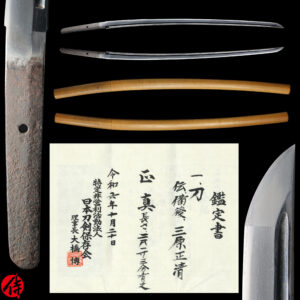 鑑定書
一、刀
伝備後 三原正清
正真 長さ 二尺二寸三分有之
令和六年十月二十日
特定非営利活動法人
日本刀剣保存会
理事長 大橋博
侍